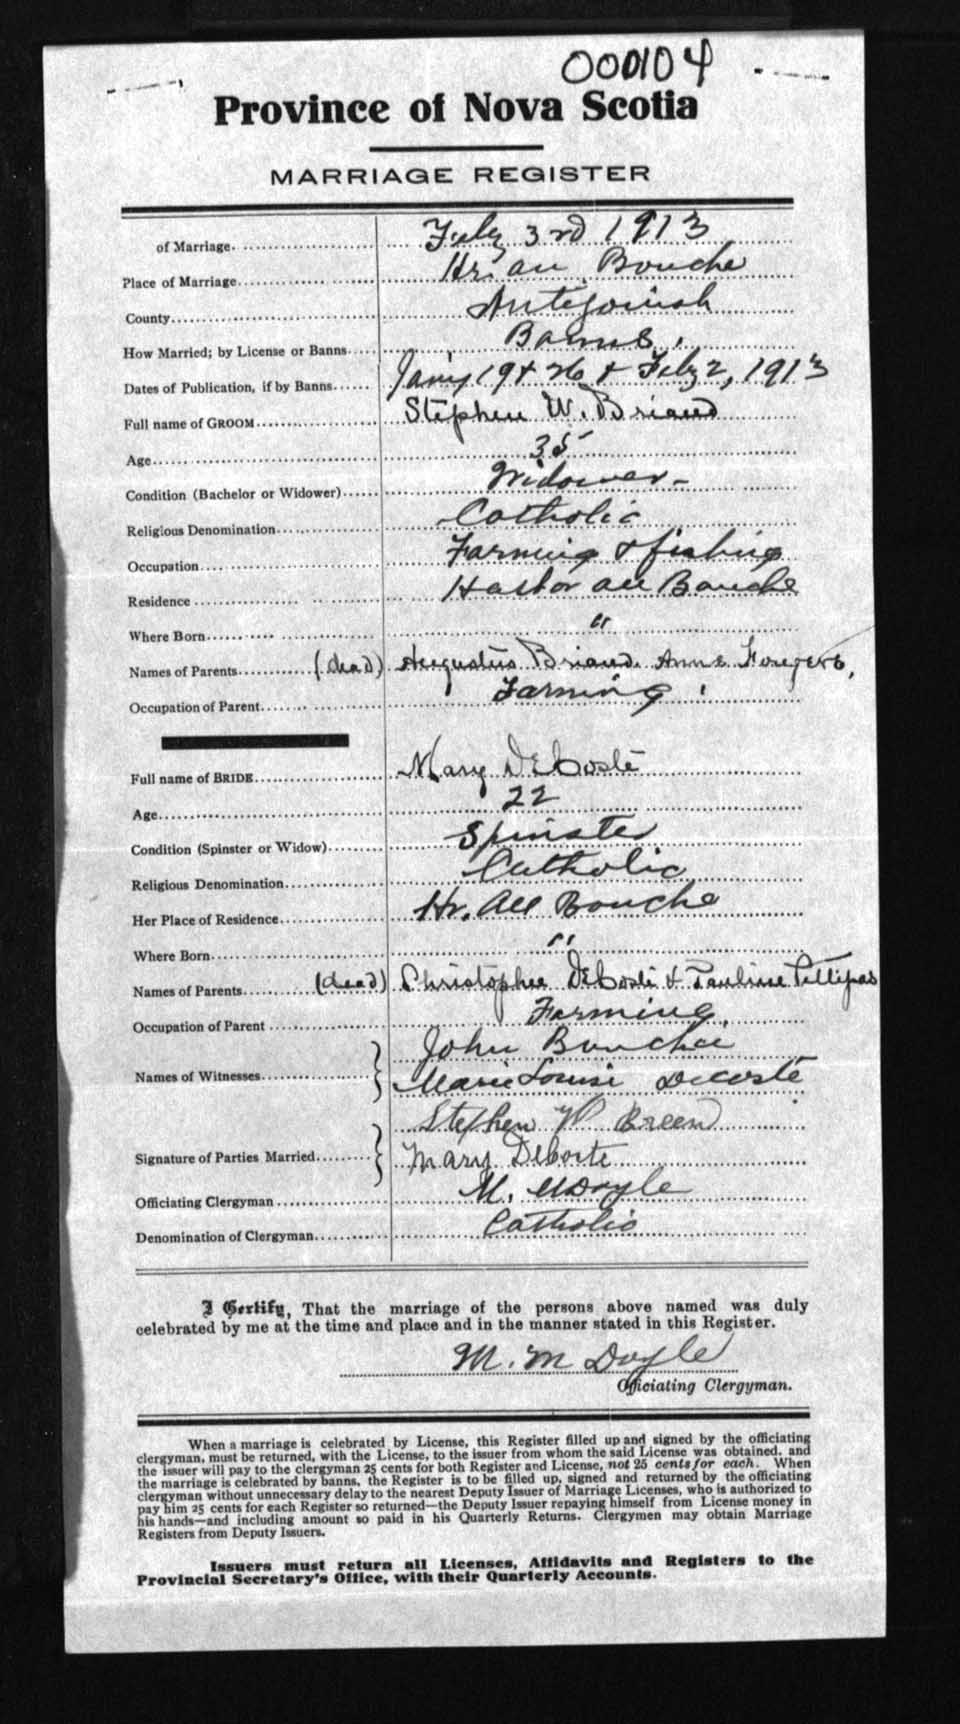 000104
Province of Nova Scotia
MARRIAGE REGISTER
of Marriage. Feby 3rd 1913
Place of Marriage Hr. au Bouche
County Antigonish
How Married; by License or Banns Banns.
Dates of Publication, if by Banns Jan'y 19 & 26 & Feby 2, 1913
Full name of GROOM Stephen W. Briand
Age 35
Condition (Bachelor or Widower) Widower
Religious Denomination Catholic
Occupation Farming & fishing
Residence Harbor au Bouche
Where Born "
Names of Parents (dead) Augustus Briand. Anne Fougere,
Occupation of Parent Farming
Full name of BRIDE Mary DeCoste
Age 22
Condition (Spinster or Widow) Spinster
Religious Denomination Catholic
Her Place of Residence Hr. Au Bouche
Where Born "
Names of Parents (dead) Christopher DeCoste & Pauline Pettipas
Occupation of Parent Farming
John
Names of Witnesses Marie Louise Decoste
Stephen W Breen
Signature of Parties Married Mary DeCoste
Officiating Clergyman M. M Doyle
Denomination of Clergyman Catholic
I Certify, That the marriage of the persons above named was duly
celebrated by me at the time and place and in the manner stated in this Register.
M. M Doyle
Officiating Clergyman.
When a marriage is celebrated by License, this Register filled up and signed by the officiating
clergyman, must be returned, with the License, to the issuer from whom the said License was obtained, and
the issuer will pay to the clergyman 25 cents for both Register and License, not 25 cents for each. When
the marriage is celebrated by banns, the Register is to be filled up, signed and returned by the officiating
clergyman without unnecessary delay to the nearest Deputy Issuer of Marriage Licenses, who is authorized to
pay him 25 cents for each Register so returned—the Deputy Issuer repaying himself from License money in
his hands—and including amount so paid in his Quarterly Returns. Clergymen may obtain Marriage
Registers from Deputy Issuers.
Issuers must return all Licenses, Affidavits and Registers to the
Provincial Secretary's Office, with their Quarterly Accounts.